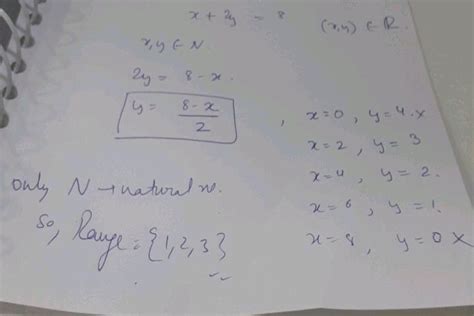 x + 2y = 8 (x,y) ∈ R.
x,y ∈ N
2y = 8 - x.
y = 8 - x / 2
, x=0, y=4. x
x=2, y=3
x=4, y=2.
x=6, y=1.
x=8, y=0 X
only N → natural no.
So, Range = {1,2,3}